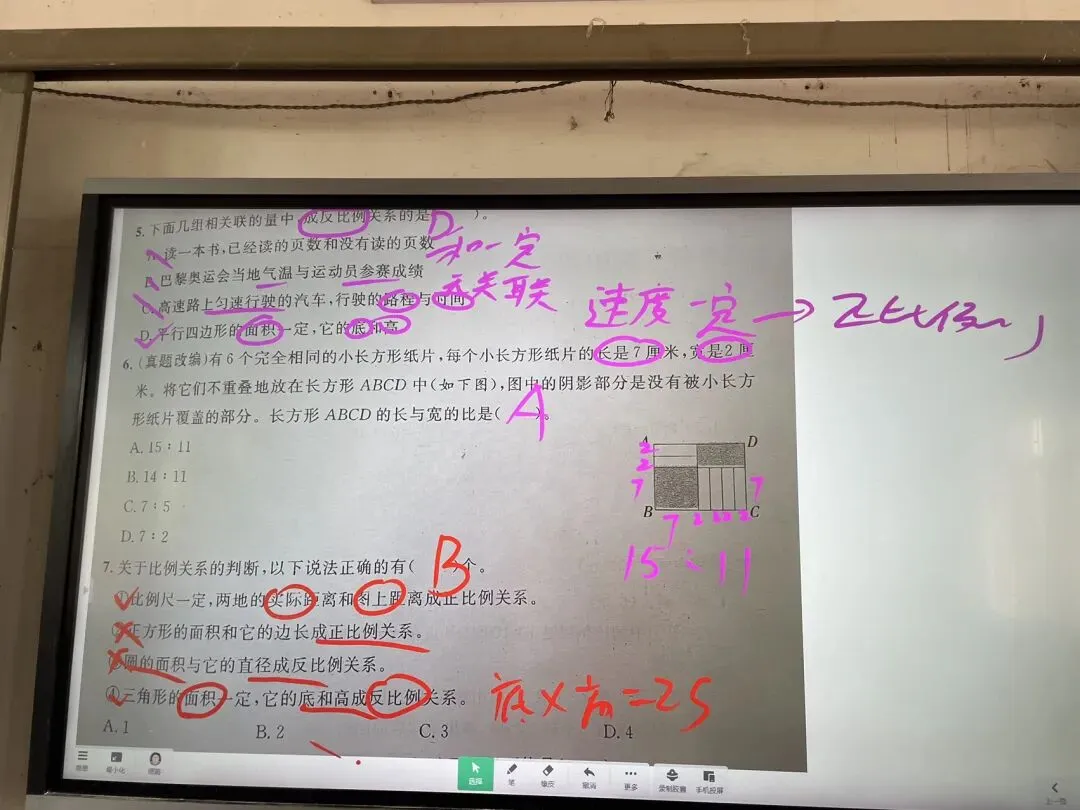 5. 下面几组相关联的量中,成反比例关系的是( D )。
A. 读一本书,已经读的页数和没有读的页数 和一定
B. 巴黎奥运会当地气温与运动员参赛成绩 无关联
C. 高速路上匀速行驶的汽车,行驶的路程与时间 速度一定→正比例
D. 平行四边形的面积一定,它的底和高
6. (真题改编)有6个完全相同的小长方形纸片,每个小长方形纸片的长是7厘米,宽是2厘
米。将它们不重叠地放在长方形ABCD中(如下图),图中的阴影部分是没有被小长方
形纸片覆盖的部分。长方形ABCD的长与宽的比是( A )。
A. 15∶11
B. 14∶11
C. 7∶5
D. 7∶2
A D
2
2
7 7
B C
7 2 2 2 2
15:11
7. 关于比例关系的判断,以下说法正确的有( B )个。
①比例尺一定,两地的实际距离和图上距离成正比例关系。
②正方形的面积和它的边长成正比例关系。
③圆的面积与它的直径成反比例关系。
④三角形的面积一定,它的底和高成反比例关系。 底×高=2S
A. 1 B. 2 C. 3 D. 4
最小化 选择 笔 橡皮 撤消 更多 录制胶囊 手机投屏 上一页